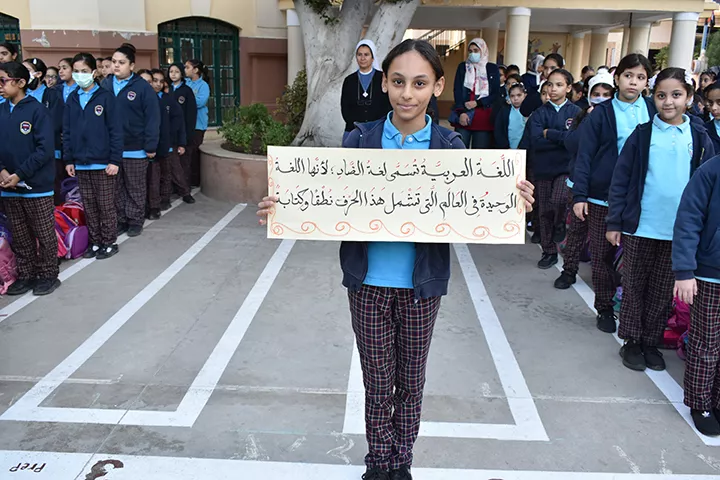 اللغة العربية تسمى لغة الضاد، لأنها اللغة
الوحيدة في العالم التي تشمل هذا الحرف نطقا وكتابة
PreP